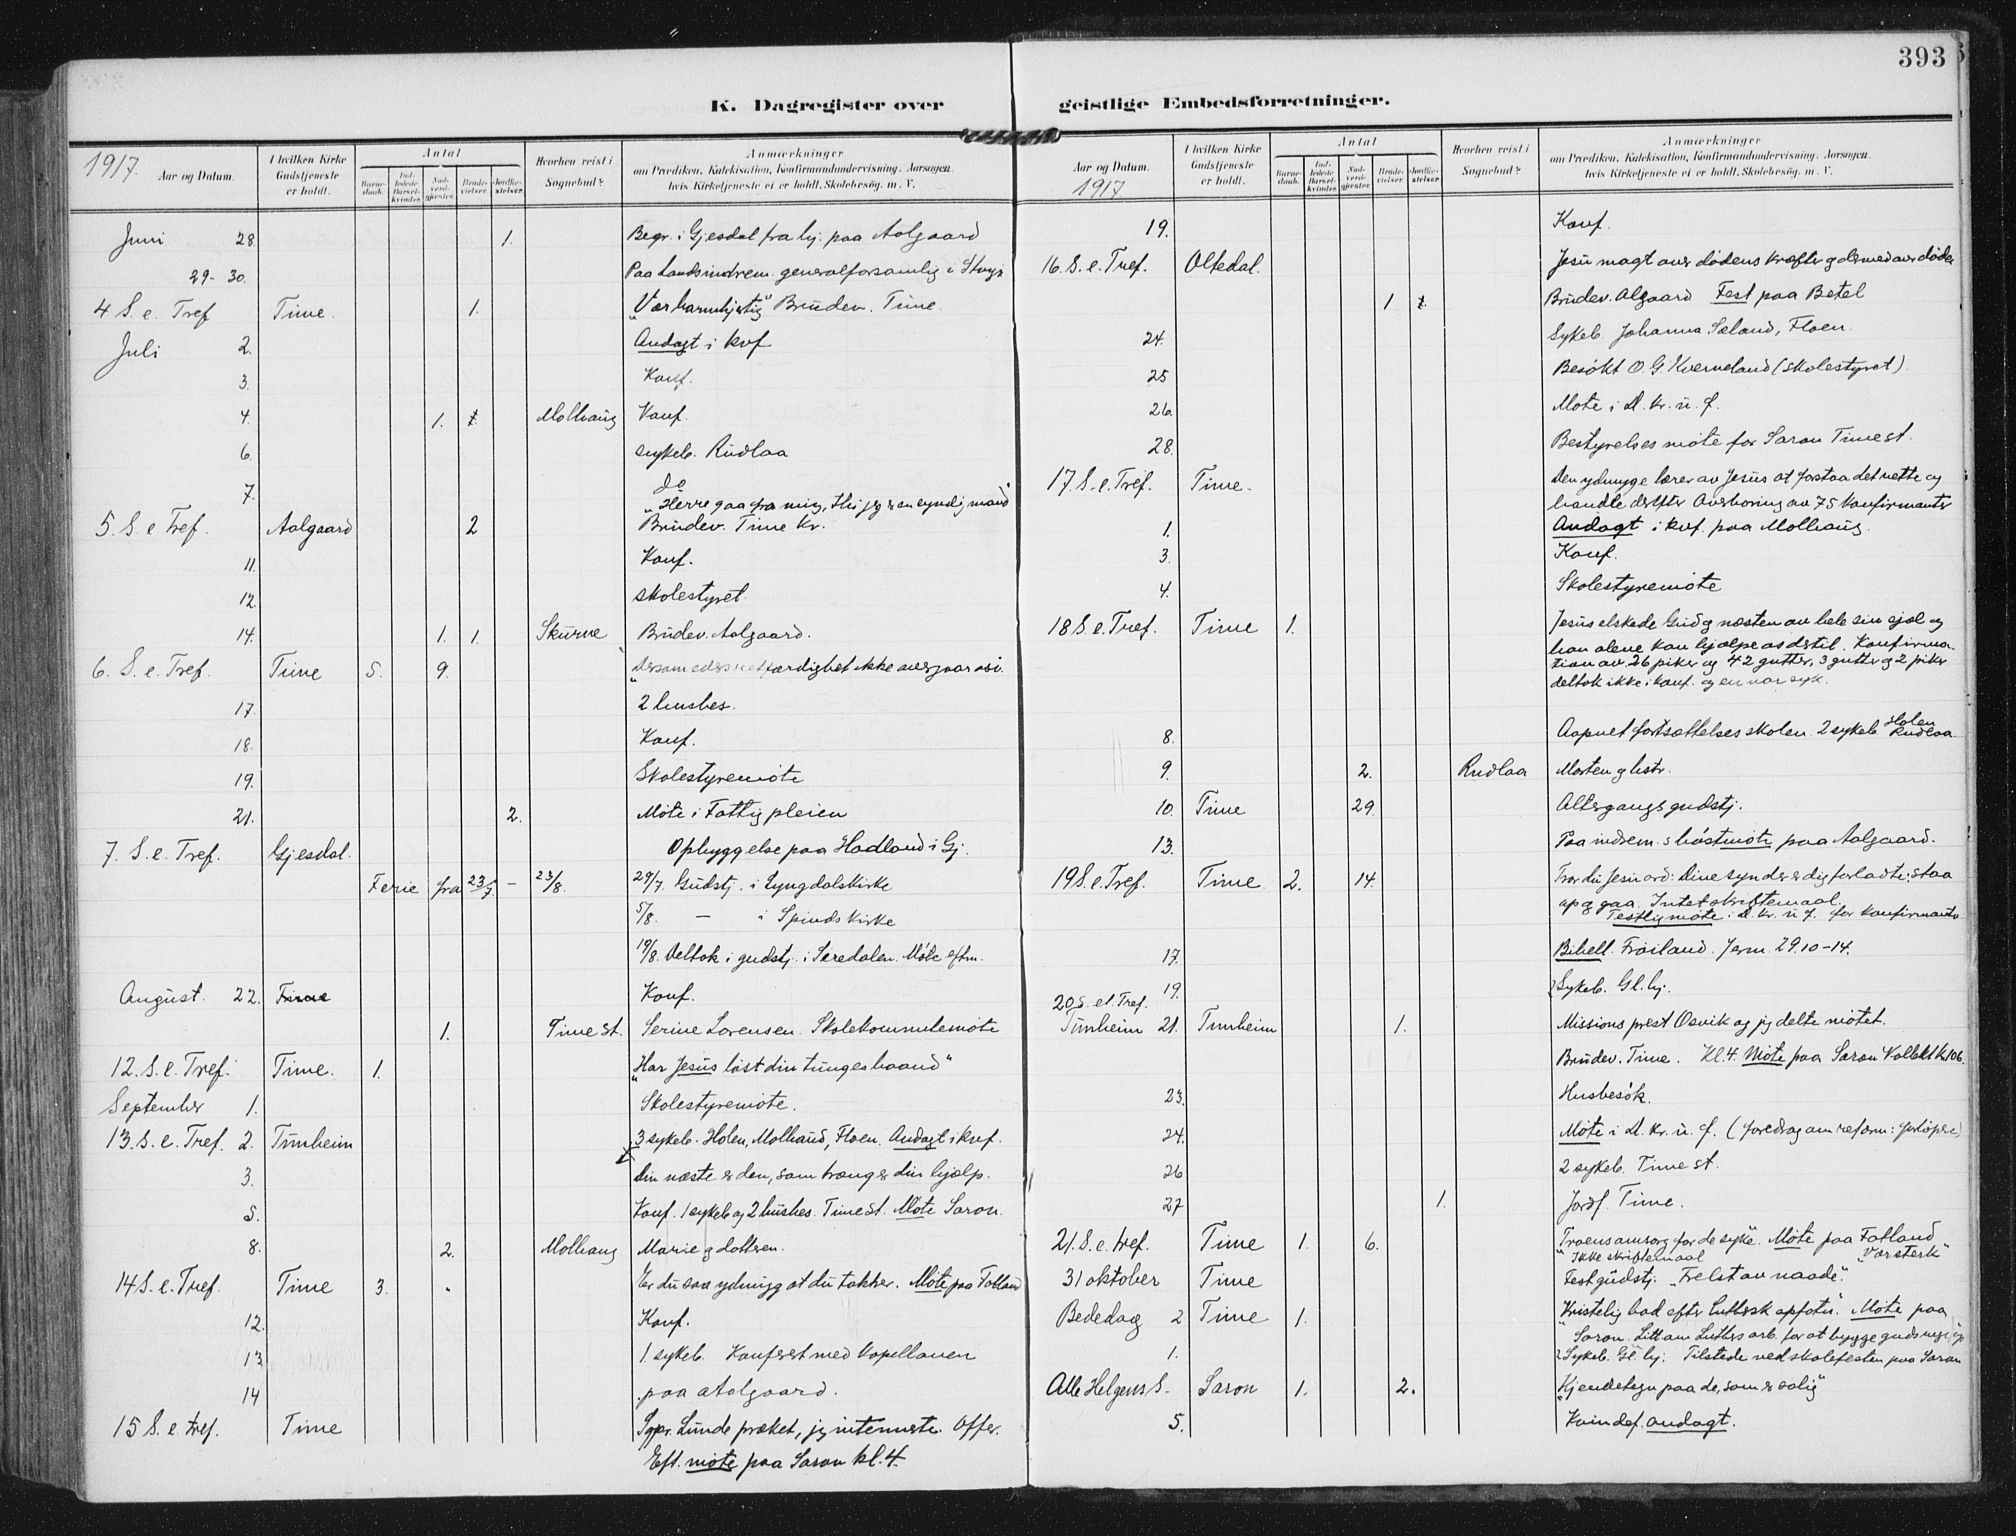 393
K. Dagregister over geistlige Embedsforretninger.
1917.
Aar og Datum.
I hvilken Kirke Gudstjeneste er holdt.
Antal
Barnedaab.
Indledede Barselkvinder.
Nadverdigjester.
Brudevielser.
Jordfæstelser.
Hvorhen reist i Sognebud?
Anmærkninger
om Prædiken, Katekisation, Konfirmandundervisning, Aarsagen
hvis Kirketjeneste ei er holdt, Skolebesøg, m. V.
Juni 28. 1. Begr. i Gjesdal fra hj. paa Aalgaard
29-30. Paa Landsindrem. generalforsamlig i Stvgr
4 S. e. Tref Time. 1. "Vær barmhjertig" Brudev. Time.
Juli 2. Andagt i kvf
3. Konf.
4. 1. Molhaug Konf.
6. sykeb. Rudlaa
7. do
"Herre gaa fra mig, thi jeg er en syndig mand
5. S e Tref. Aalgaard 2 Brudev. Time kr.
11. Konf.
12. skolestyret.
14. 1. 1. Skurve Brudev. Aalgaard.
6. S. e. Tref. Time 5. 9. "Dersom eders retfærdighet ikke overgaar
17. 2 husbes.
18. Konf.
19. Skolestyremöte
21. 2. Möte i Fattigpleien
7. S. e. Tref. Gjesdal. Opbyggelse paa Hadland i Gj.
Ferie fra 23/7 - 23/8. 29/7 Gudstj. i Lyngdalskirke
5/8. — i Spinds kirke
19/8. Deltok i gudstj. i Siredalen. Möte eftm.
August. 22. Time Konf.
1. Time st. Serine Lorensen. Skolekommitemöte
12. S. e. Tref. Time. 1. "Har Jesus löst din tunges baand"
September 1. Skolestyremöte.
13. S. e. Tref. 2. Tunheim 3 sykeb. Holen, Molhaud, Floen. Andagt i kvf.
3. Din næste er den, som trænger din hjælp.
5. Konf. 1 sykeb og 2 husbes. Time st. Möte Saron.
8. 2. Molhaug Marie g dotteren.
14 S. e. Tref. Time 3. Er du saa ydmyg at du takker. Möte paa Fotland
12. Konf.
13 1. sykeb. Konferert med kapellanen
14 paa Aalgaard.
15 S. e. tref. Time Sgpr. Lunde præket, jeg intermeste. Offer.
Eft. möte paa Saron kl. 4.
Aar og Datum.
1917
I hvilken Kirke Gudstjeneste er holdt.
Antal
Barnedaab.
Indledede Barselkvinder.
Nadverdigjester.
Brudevielser.
Jordfæstelser.
Hvorhen reist i Sognebud?
Anmærkninger
om Prædiken, Katekisation, Konfirmandundervisning, Aarsagen
hvis Kirketjeneste ei er holdt, Skolebesøg, m. V.
19. Konf.
16. S. e. Tref. Oltedal. Jesu magt over dödens kræfter g dermed over döden
1 Brudev. Algaard Fest paa Betel
Sykeb. Johanna Sæland, Floen.
24. Besökt O. G. Kverneland (skolestyret)
25
26. Möte i D. kr. u. f.
28. Bestyrelses möte for Saron Time st.
17. S. e. Tref. Time. Den ydmyge lærer av Jesus at forstaa det rette og
handle derefter Overhöring av 75 konfirmanter
1. Andagt i kvf. paa Molhaug.
3. Konf.
4. Skolestyremöte
18 S. e. Tref. Time 1. Jesus elskede Gud g næsten av hele sin sjæl og
han alene kan hjælpe os dertil. Konfirma-
tion av 26 piker og 42 gutter, 3 gutter g 2 piker
deltok ikke i konf. og en var syk.
8. Aapnet fortsættelsesskolen. 2 sykeb Holen Rudlaa.
9. 2. Rudlaa Morten g hstr.
10. Time 29. Altergangsgudstj.
13. Paa indrem.s höstmöte paa Aalgaard.
19 S. e. Tref. Time 2. 14. Tror du Jesu ord: Dine synder er dig forladte; staa
op g gaa. Intet skriftemaal.
Festligmöte i D. kr. u f. for konfirmanter
17. Bibell. Fröiland. Jerm. 29.10-14.
19. 2 Sykeb. Gl. hj.
20 S. et Tref.
Tunheim 21. Tunheim 1. Missionsprest Osvik og jeg delte mötet.
Brudev. Time. Kl. 4. Möte paa Saron Kollekt k. 106.
23. Husbesök.
24. Möte i D. kr. u. f. (foredrag om reform:
26 2 sykeb. Time st.
27 1. Jordf. Time.
21. S. e. tref. Time 1. 6. "Troens omsorg for de syke". Möte paa Fotland
Ikke skriftemaal "Vær sterk"
31 oktober Time Festgudstj. "Frelst av naade".
Bededag 2 Time 1. "Kristelig bod efter Luthersk Möte paa
Saron. Litt om Luthers arb. for at bygge guds
1. 2 Sykeb. Gl. hj. Tilstede ved skolefesten paa Saron
Alle Helgens S. Saron 1. 2. "Kjendetegn paa de, som er salig"
5. Kvindef. andagt.